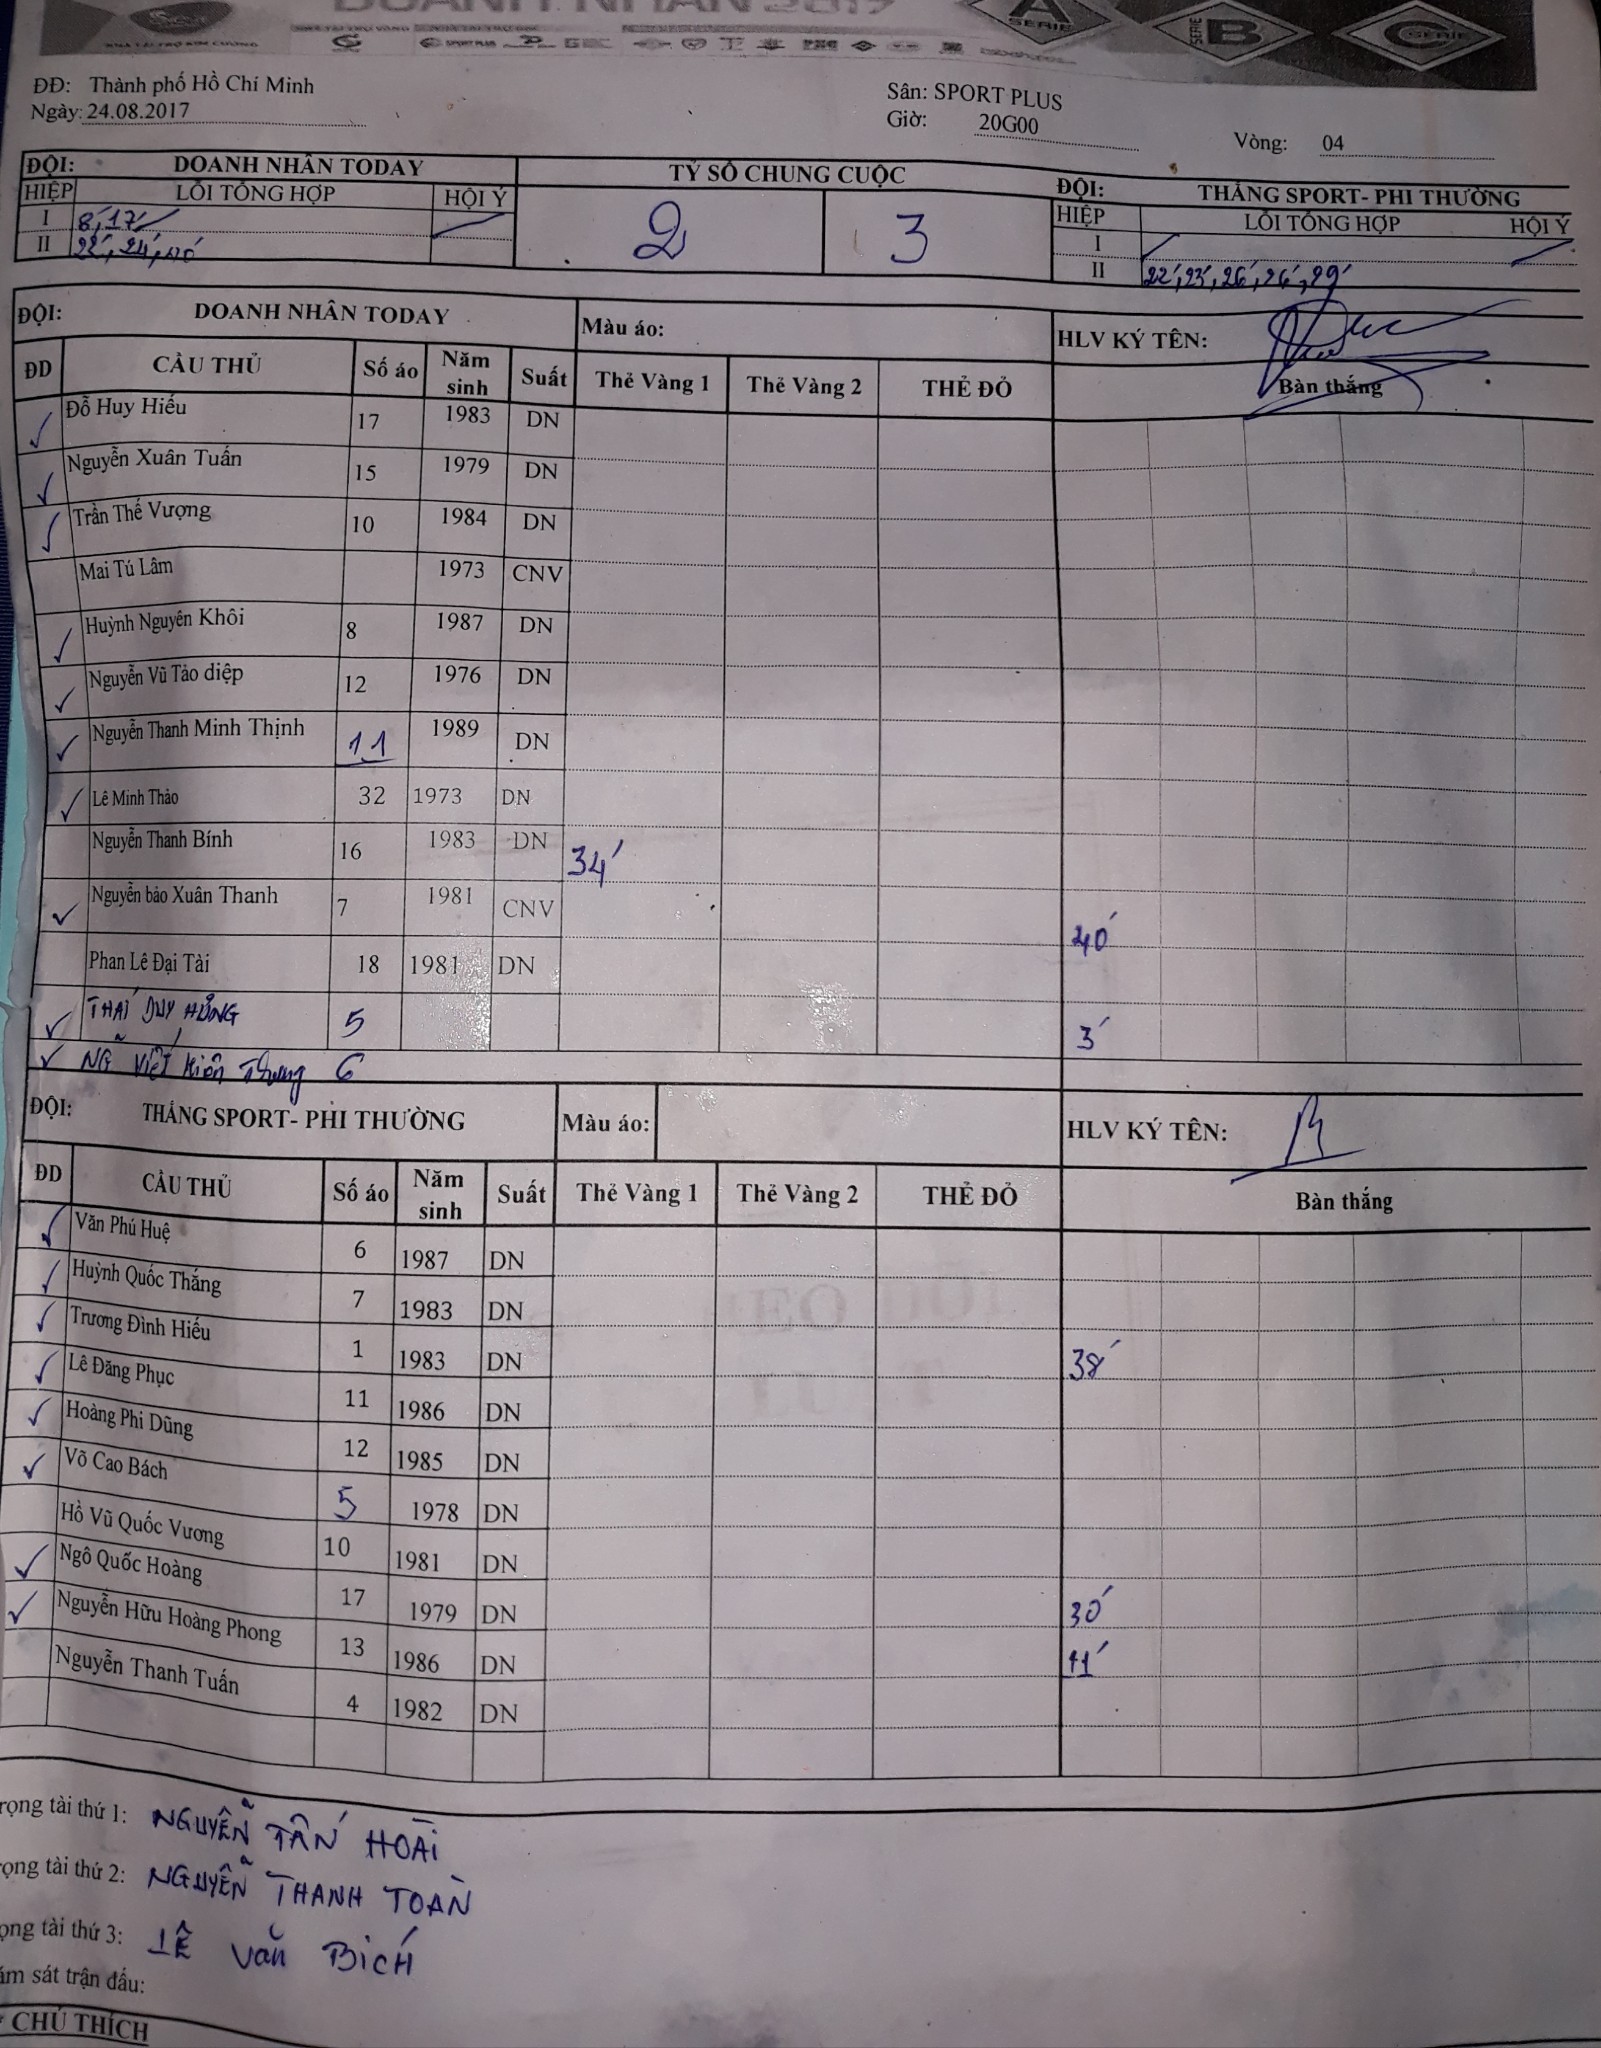 DOANH NHÂN 2017
A SERIE
SERIE B
C SERIE
SPORT PLUS
ĐĐ: Thành phố Hồ Chí Minh
Sân: SPORT PLUS
Ngày: 24.08.2017
Giờ: 20G00
Vòng: 04
ĐỘI: DOANH NHÂN TODAY
TỶ SỐ CHUNG CUỘC
ĐỘI: THẮNG SPORT- PHI THƯỜNG
HIỆP LỖI TỔNG HỢP HỘI Ý
HIỆP LỖI TỔNG HỢP HỘI Ý
I 8', 17'
2 3
I
II 22', 24', 40'
II 22', 23', 26', 26', 29'
ĐỘI: DOANH NHÂN TODAY Màu áo: HLV KÝ TÊN:
ĐD CẦU THỦ Số áo Năm sinh Suất Thẻ Vàng 1 Thẻ Vàng 2 THẺ ĐỎ Bàn thắng
Đỗ Huy Hiếu 17 1983 DN
Nguyễn Xuân Tuấn 15 1979 DN
Trần Thế Vượng 10 1984 DN
Mai Tú Lâm 1973 CNV
Huỳnh Nguyên Khôi 8 1987 DN
Nguyễn Vũ Tảo diệp 12 1976 DN
Nguyễn Thanh Minh Thịnh 11 1989 DN
Lê Minh Thảo 32 1973 DN
Nguyễn Thanh Bính 16 1983 DN 34'
Nguyễn bảo Xuân Thanh 7 1981 CNV 40'
Phan Lê Đại Tài 18 1981 DN
THÁI DUY HỒNG 5 3'
NG~ Viết Kiên Trung 6
ĐỘI: THẮNG SPORT- PHI THƯỜNG Màu áo: HLV KÝ TÊN:
ĐD CẦU THỦ Số áo Năm sinh Suất Thẻ Vàng 1 Thẻ Vàng 2 THẺ ĐỎ Bàn thắng
Văn Phú Huệ 6 1987 DN
Huỳnh Quốc Thắng 7 1983 DN
Trương Đình Hiếu 1 1983 DN 38'
Lê Đăng Phục 11 1986 DN
Hoàng Phi Dũng 12 1985 DN
Võ Cao Bách 5 1978 DN
Hồ Vũ Quốc Vương 10 1981 DN
Ngô Quốc Hoàng 17 1979 DN 30'
Nguyễn Hữu Hoàng Phong 13 1986 DN 11'
Nguyễn Thanh Tuấn 4 1982 DN
rọng tài thứ 1: NGUYỄN TẤN HOÀI
ọng tài thứ 2: NGUYỄN THANH TOÀN
ọng tài thứ 3: LÊ Văn BÍCH
ám sát trận đấu:
CHÚ THÍCH